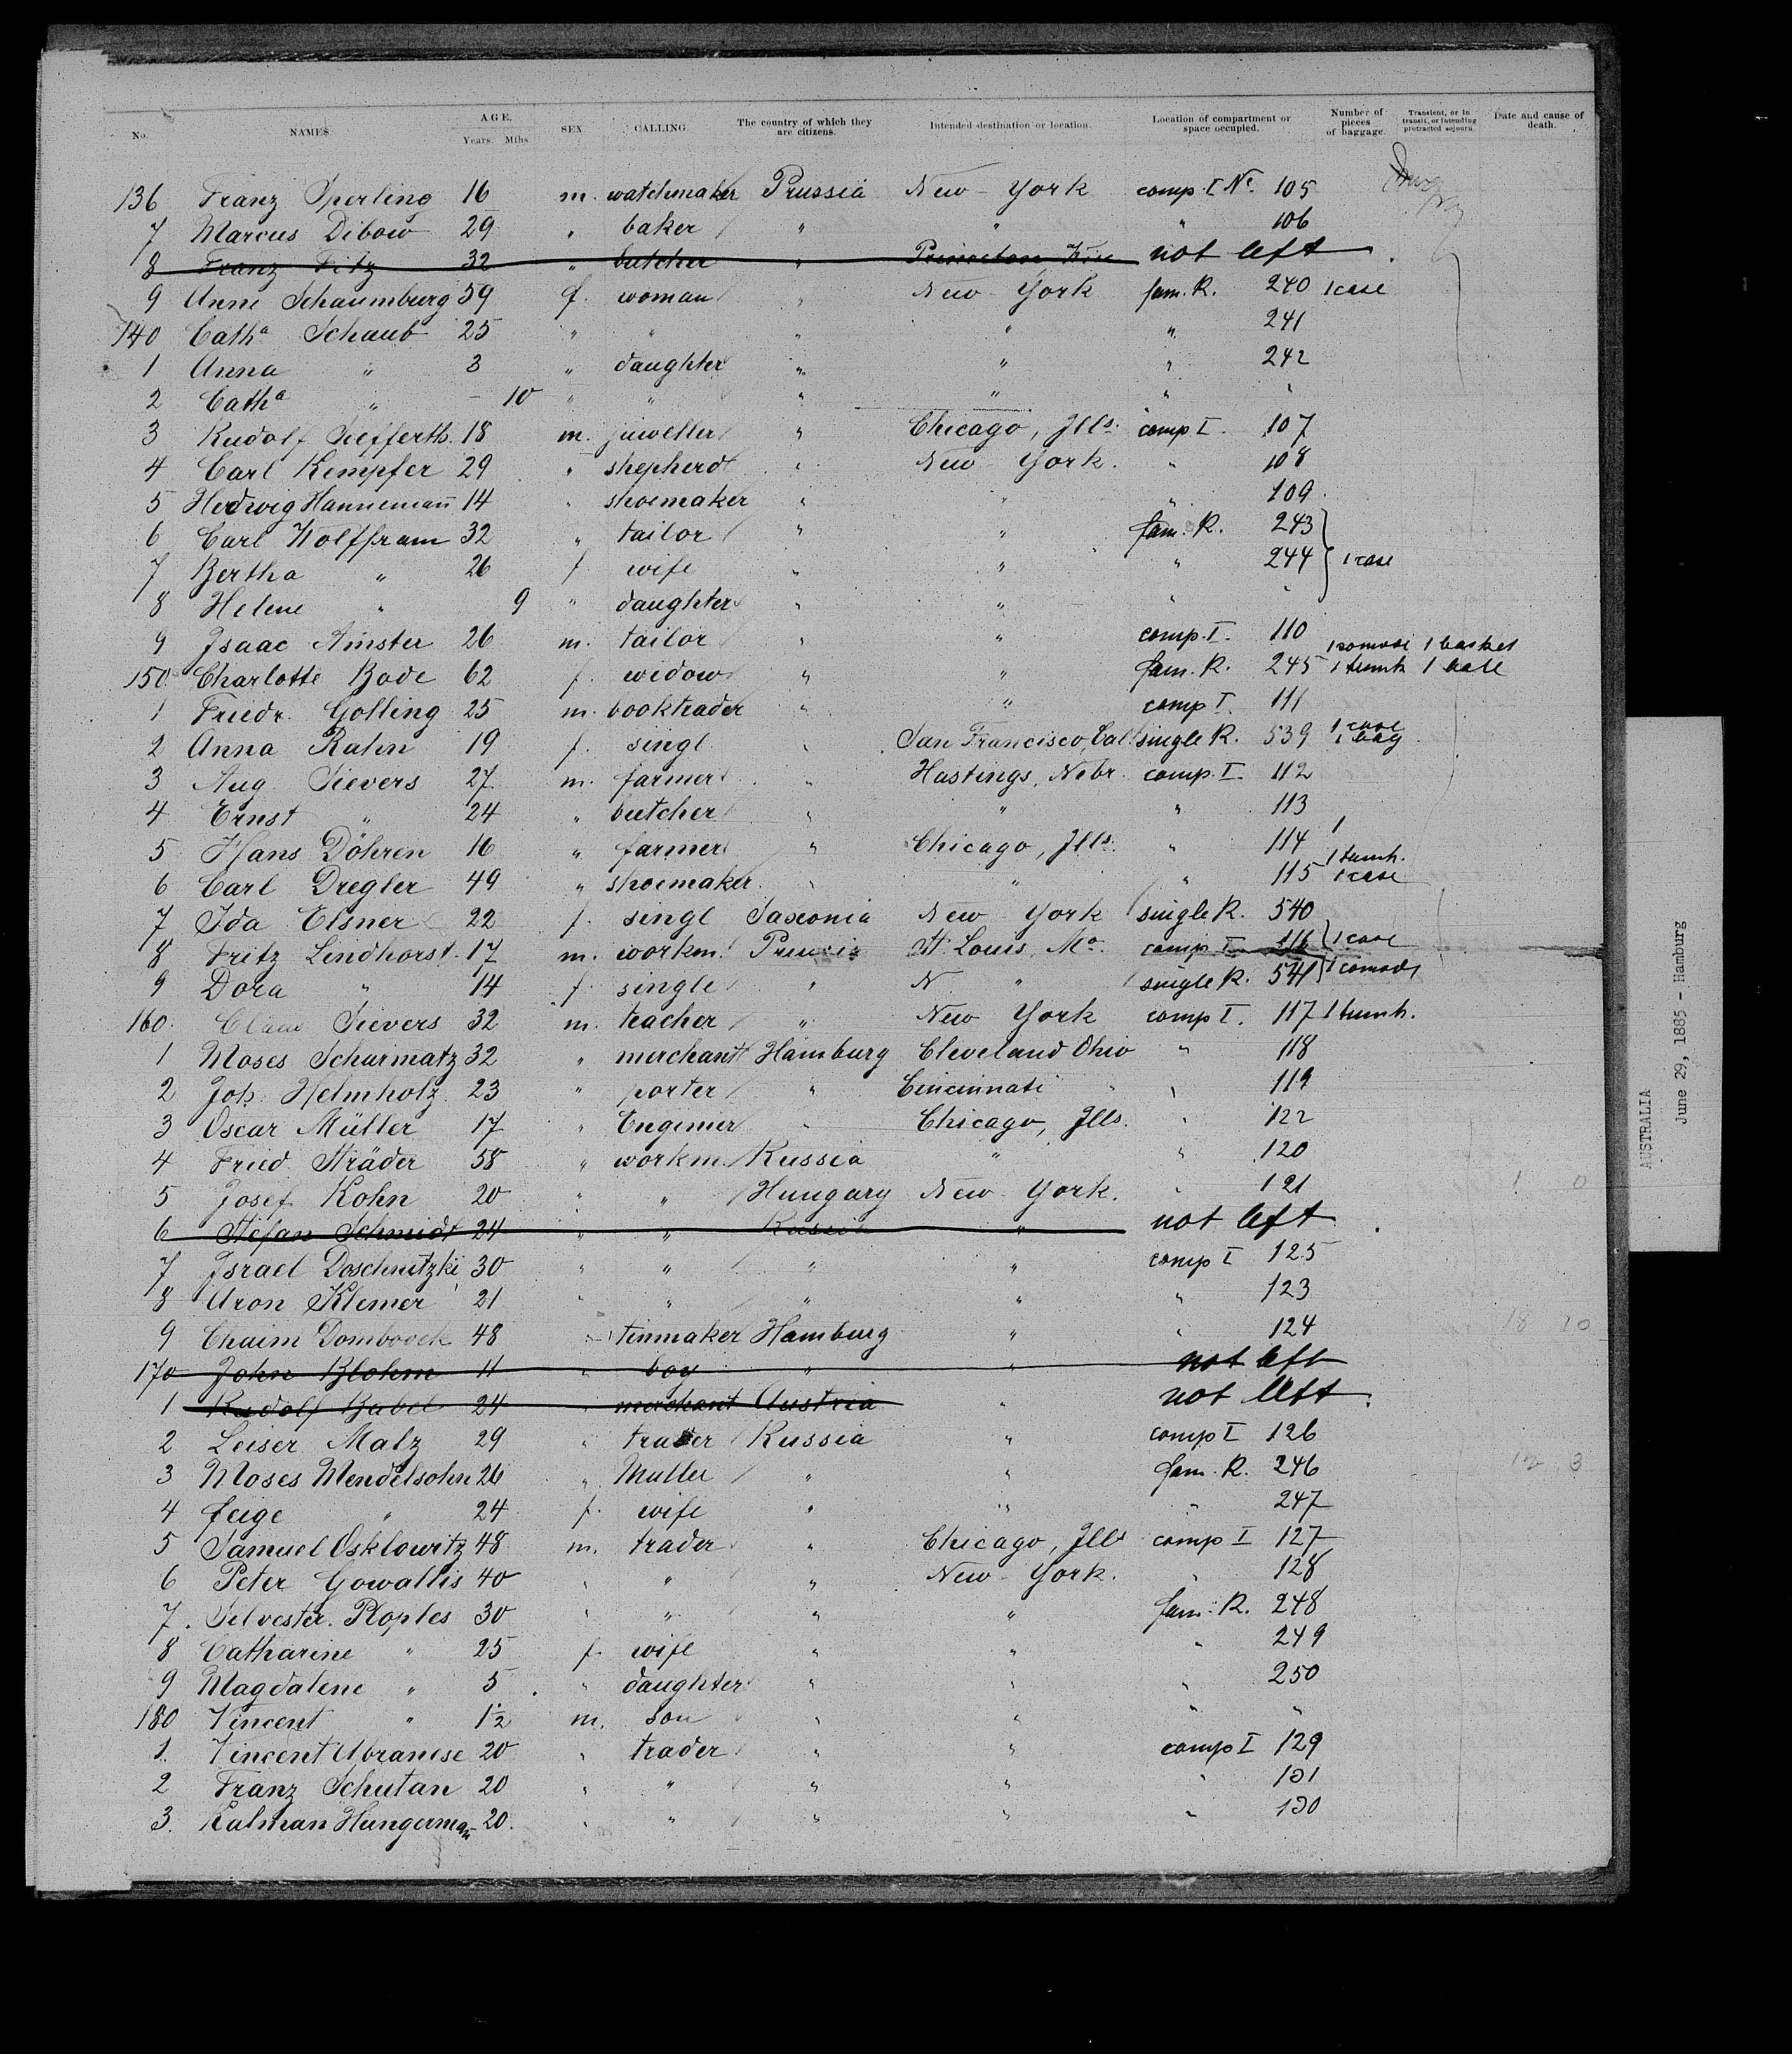 No. NAMES. AGE. Years. Mths. SEX. CALLING. The country of which they are citizens. Intended destination or location. Location of compartment or space occupied. Number of pieces of baggage. Transient, or in transit, or intending protracted sojourn. Date and cause of death.
136 Franz Sperling 16 m. watchmaker Prussia New-York comp. I No. 105
7 Marcus Dibow 29 " baker " " " 106
8 Franz Fitz 32 " butcher " Princeton not left
9 Anne Schaumburg 59 f. woman " New York fam. R. 240 1 case
140 Catha Schaub 25 " " " " " 241
1 Anna " 3 " daughter " " " 242
2 Catha " - 10 " " " " " "
3 Rudolf Siefferth. 18 m. juweller " Chicago, Ills. comp I. 107
4 Carl Kempfer 29 " shepherd " New York. " 108
5 Hedwig Hannemann 14 " shoemaker " " " 109
6 Carl Wolffram 32 " tailor " " fam. R. 243
7 Bertha " 26 f wife " " " 244 1 case
8 Helene " 9 " daughter " " " "
9 Isaac Amster 26 m. tailor " " comp. I. 110
150 Charlotte Bode 62 f. widow " " fam. R. 245 1 comode 1 basket 1 trunk 1 bale
1 Friedr. Golling 25 m. booktrader " " comp I. 111
2 Anna Rahn 19 f. singl. " San Francisco, Cal. single R. 539 1 case 1 bag
3 Aug. Sievers 27 m. farmer " Hastings, Nebr. comp. I. 112
4 Ernst " 24 " butcher " " " 113
5 Hans Döhren 16 " farmer " Chicago, Ills. " 114 1
6 Carl Dregler 49 " shoemaker. " " " 115 1 trunk. 1 case
7 Ida Elsner 22 f. singl Saxonia New York single R. 540
8 Fritz Lindhorst. 17 m. workm. Prussia St. Louis, Mo. comp I 116 1 case
9 Dora " 14 f single " N " single R. 541 1 comode
160. Claus Sievers 32 m. teacher " New York comp I. 117 1 trunk.
1 Moses Scharmatz 32 " merchant Hamburg Cleveland Ohio " 118
2 Joh. Helmholz 23 " porter " Cincinnati " " 119
3 Oscar Müller 17 " Enginier " Chicago, Ills. " 122
4 Fried. Sträder 58 " workm. Russia " " 120
5 Josef Kohn 20 " " Hungary New York. " 121 1 0
6 Stefan Schmidt 24 " " Russia " not left
7 Israel Doschnitzki 30 " " " " comp I 125
8 Aron Klemer 21 " " " " " 123
9 Chaim Domboock 48 " tinmaker Hamburg " " 124 18 10
170 John Blohm 11 " boy " " not left
1 Rudolf Babel 24 " merchant Austria " not left
2 Leiser Malz 29 " trader Russia " comp I 126
3 Moses Mendelsohn 26 " Muller " " fam. R. 246 12 3
4 Feige " 24 f. wife " " " 247
5 Samuel Osklowitz 48 m. trader " Chicago, Ills comp I 127
6 Peter Gowallis 40 " " " New York. " 128
7. Silvester. Ploples 30 " " " " fam. R. 248
8 Catharine " 25 f. wife " " " 249
9 Magdalene " 5 " daughter " " " 250
180 Vincent " 1½ m. son " " " "
1. Vincent Abranise 20 " trader " " comp I 129
2 Franz Schutan 20 " " " " " 131
3. Kalman Hungerman 20. " " " " " 130
AUSTRALIA
June 29, 1885 - Hamburg